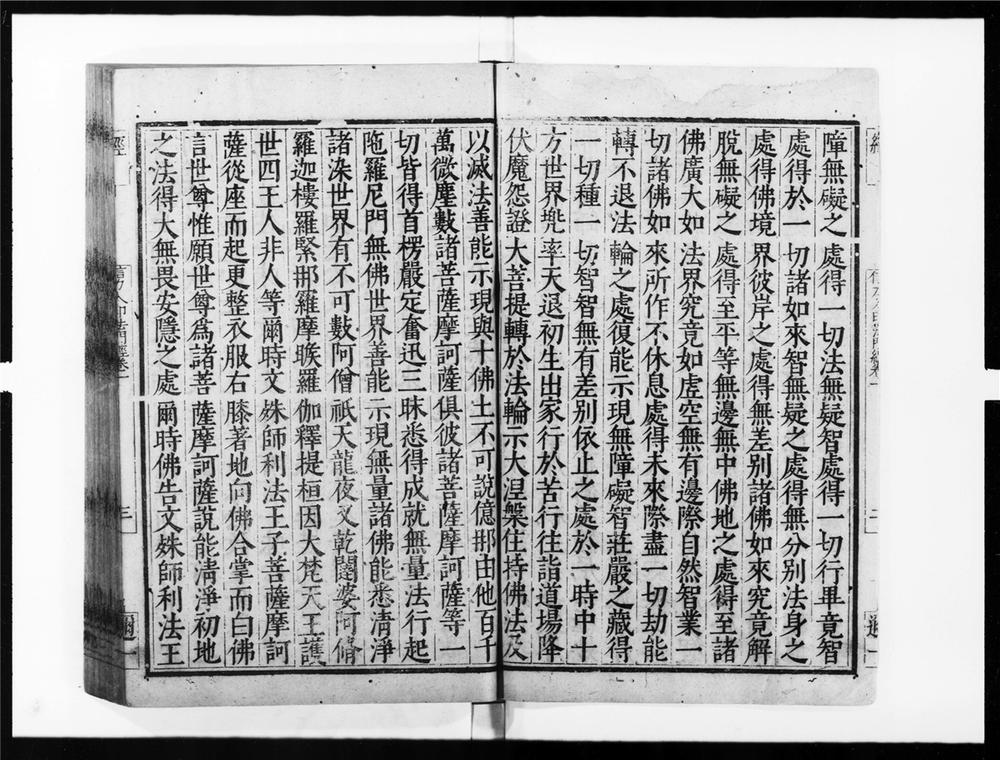 障無礙之處得一切法無疑智處得一切行畢竟智
處得於一切諸如來智無疑之處得無分別法身之
處得佛境界彼岸之處得無差別諸佛如來究竟解
脫無礙之處得至平等無邊無中佛地之處得至諸
佛廣大如法界究竟如虛空無有邊際自然智業一
切諸佛如來所作不休息處得未來際盡一切劫能
轉不退法輪之處復能示現無障礙智莊嚴之藏得
一切種一切智智無有差別依止之處於一時中十
方世界兜率天退初生出家行於苦行往詣道場降
伏魔怨證大菩提轉於法輪示大涅槃住持佛法及
以滅法善能示現與十佛土不可說億那由他百千
萬微塵數諸菩薩摩訶薩俱彼諸菩薩摩訶薩等一
切皆得首楞嚴定奮迅三昧悉得成就無量法行起
陁羅尼門無佛世界善能示現無量諸佛能悉清淨
諸染世界有不可數阿僧祇天龍夜叉乾闥婆阿脩
羅迦樓羅緊那羅摩睺羅伽釋提桓因大梵天王護
世四王人非人等爾時文殊師利法王子菩薩摩訶
薩從座而起更整衣服右膝著地向佛合掌而白佛
言世尊惟願世尊爲諸菩薩摩訶薩說能清淨初地
之法得大無畏安隱之處爾時佛告文殊師利法王
經
三